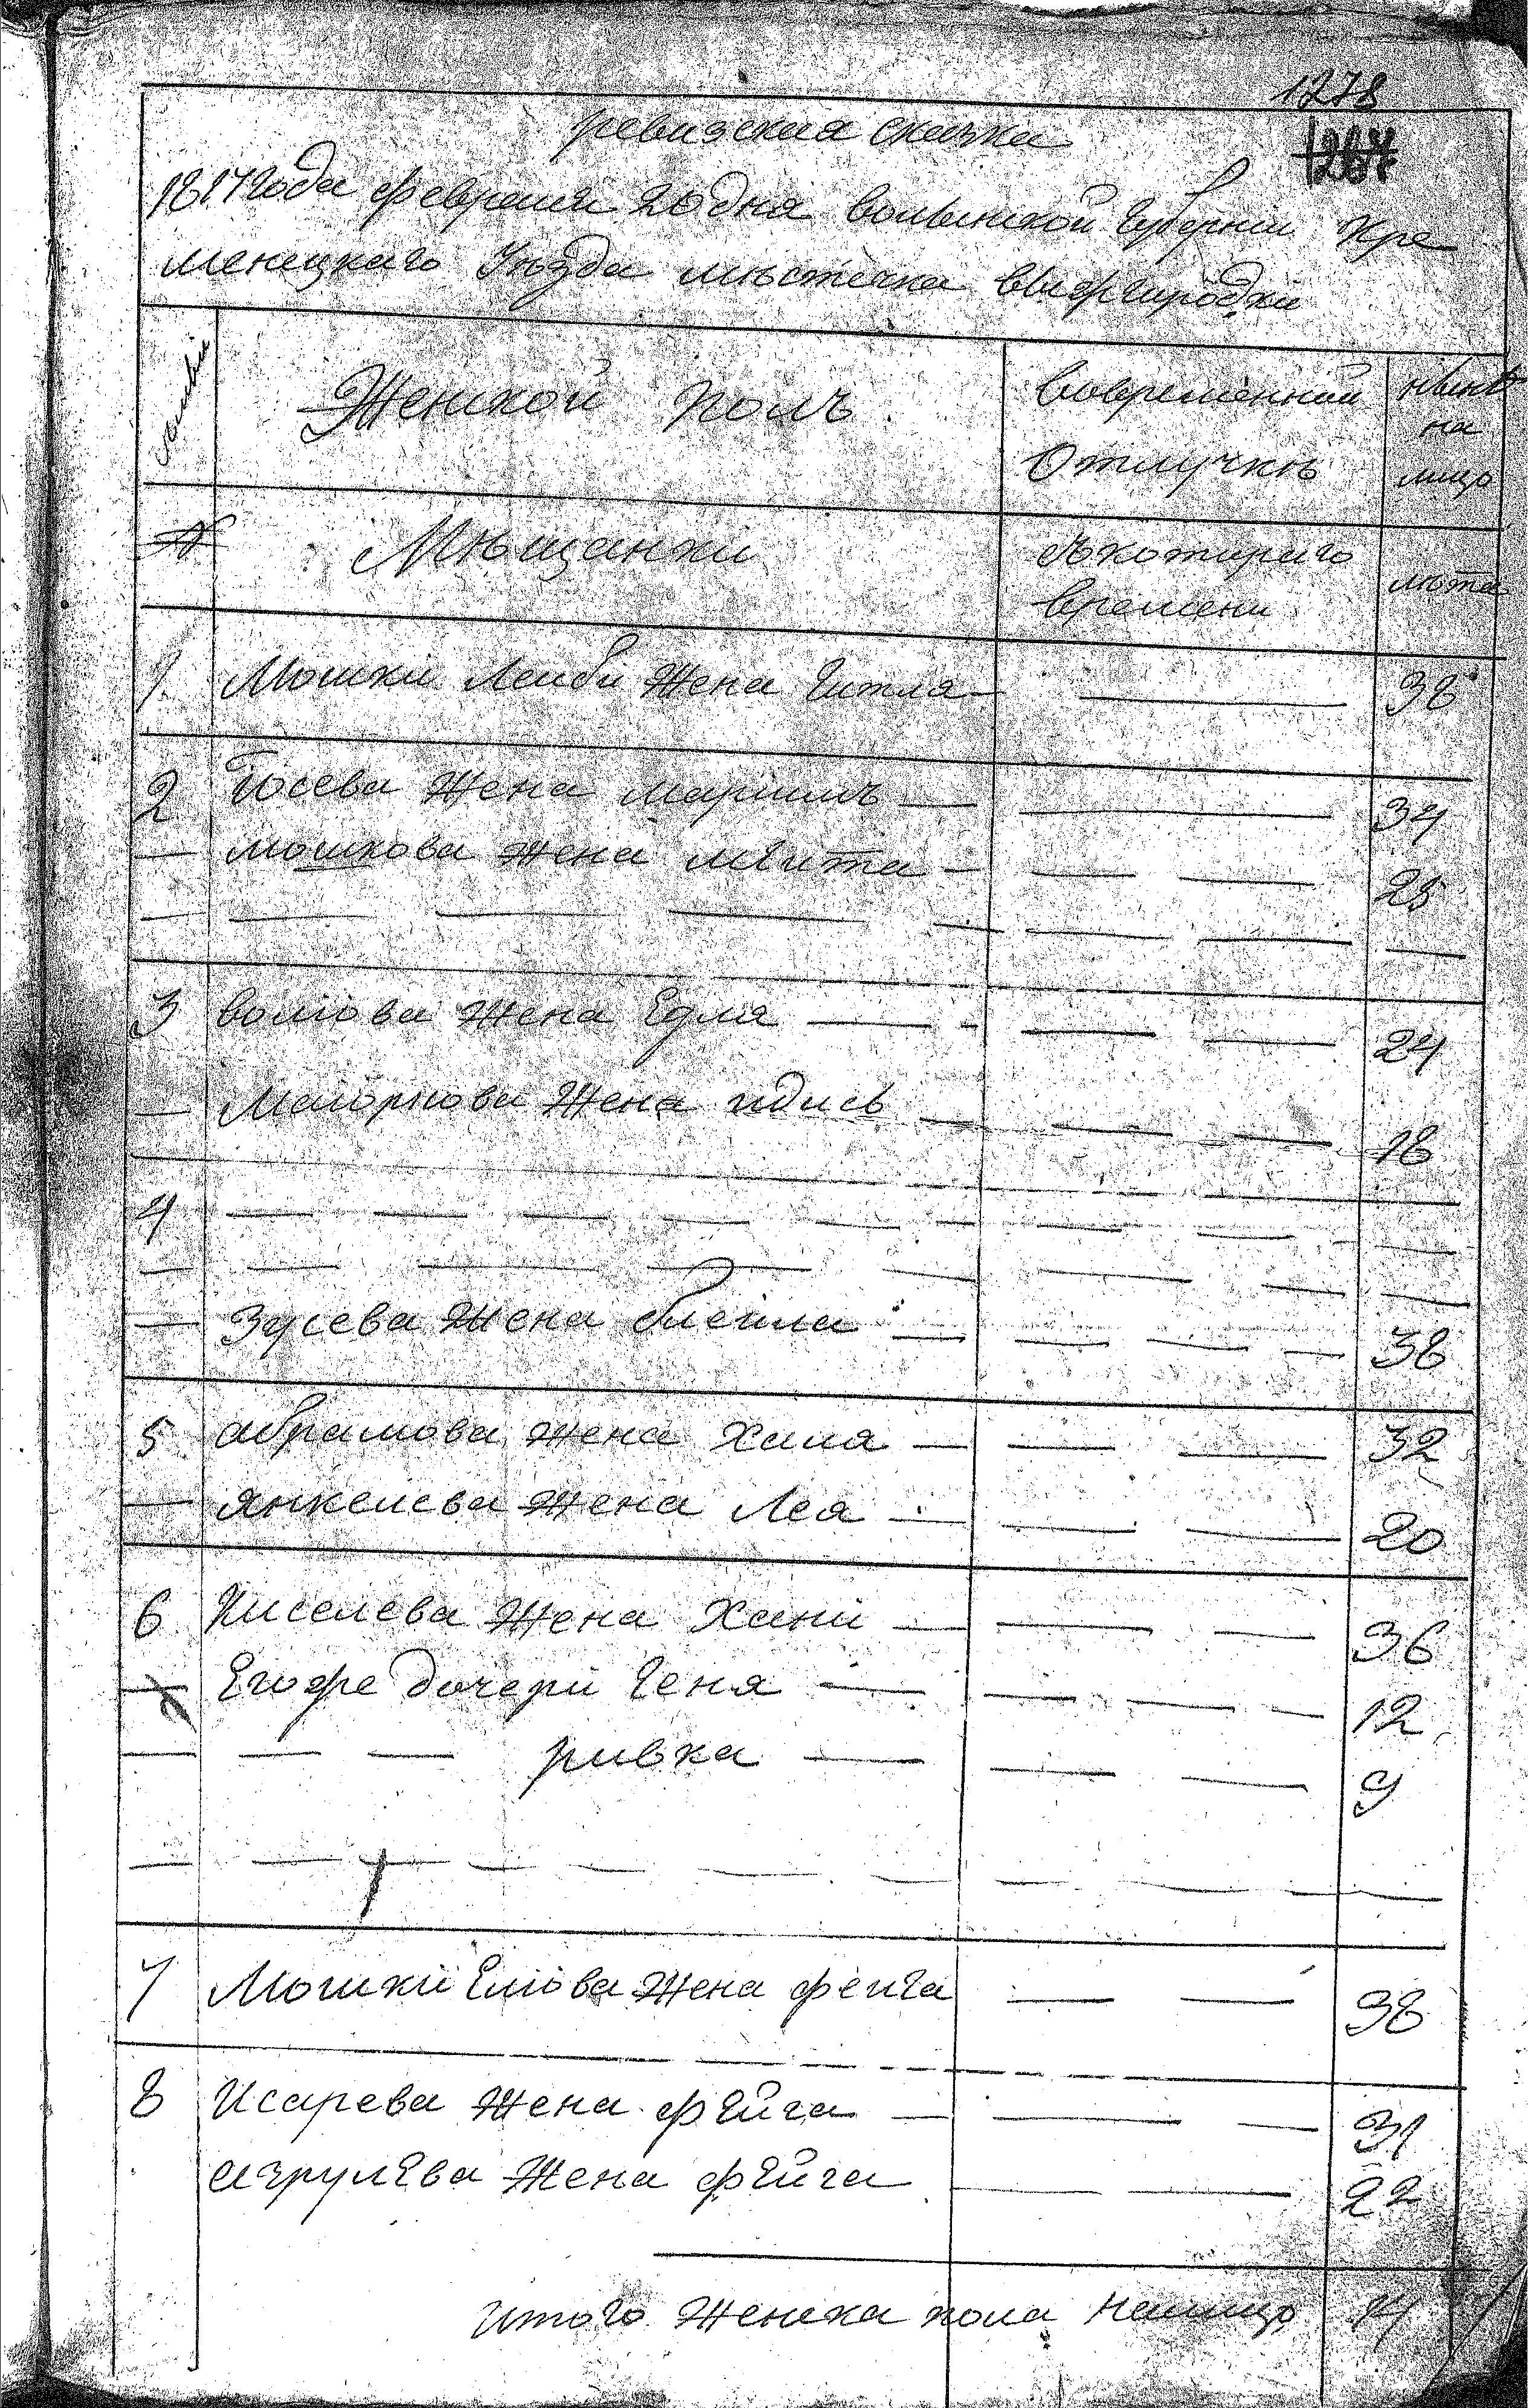 1278
1267
ревизская сказка
1817 года февраля 20 дня волынской Губернiи Кре
менецкаго Уѣзда мѣстечка вышгородки
Женской полъ
вовременной
Отлучкѣ
нынѣ
на
лицо
Мѣщанки
Съ котораго
времени
лѣта
1 Мошки Лейби Жена Гитля 38
2 Iосева Жена Маримъ 34
мошкова Жена 25
3 волiова Жена Едля 24
Маiоркова Жена идись 18
4
Зусева Жена блейма 38
5 абрамова Жена Хая 32
Янкелева Жена Лея 20
6 Киселева Жена Хани 36
Егоже дочери Геня 12
ривка 9
7 Мошки Елiова Жена фейга 38
8 Исарева Жена фЕйга 31
азрулЕва Жена фЕйга 22
Итого Женска пола налицо 14